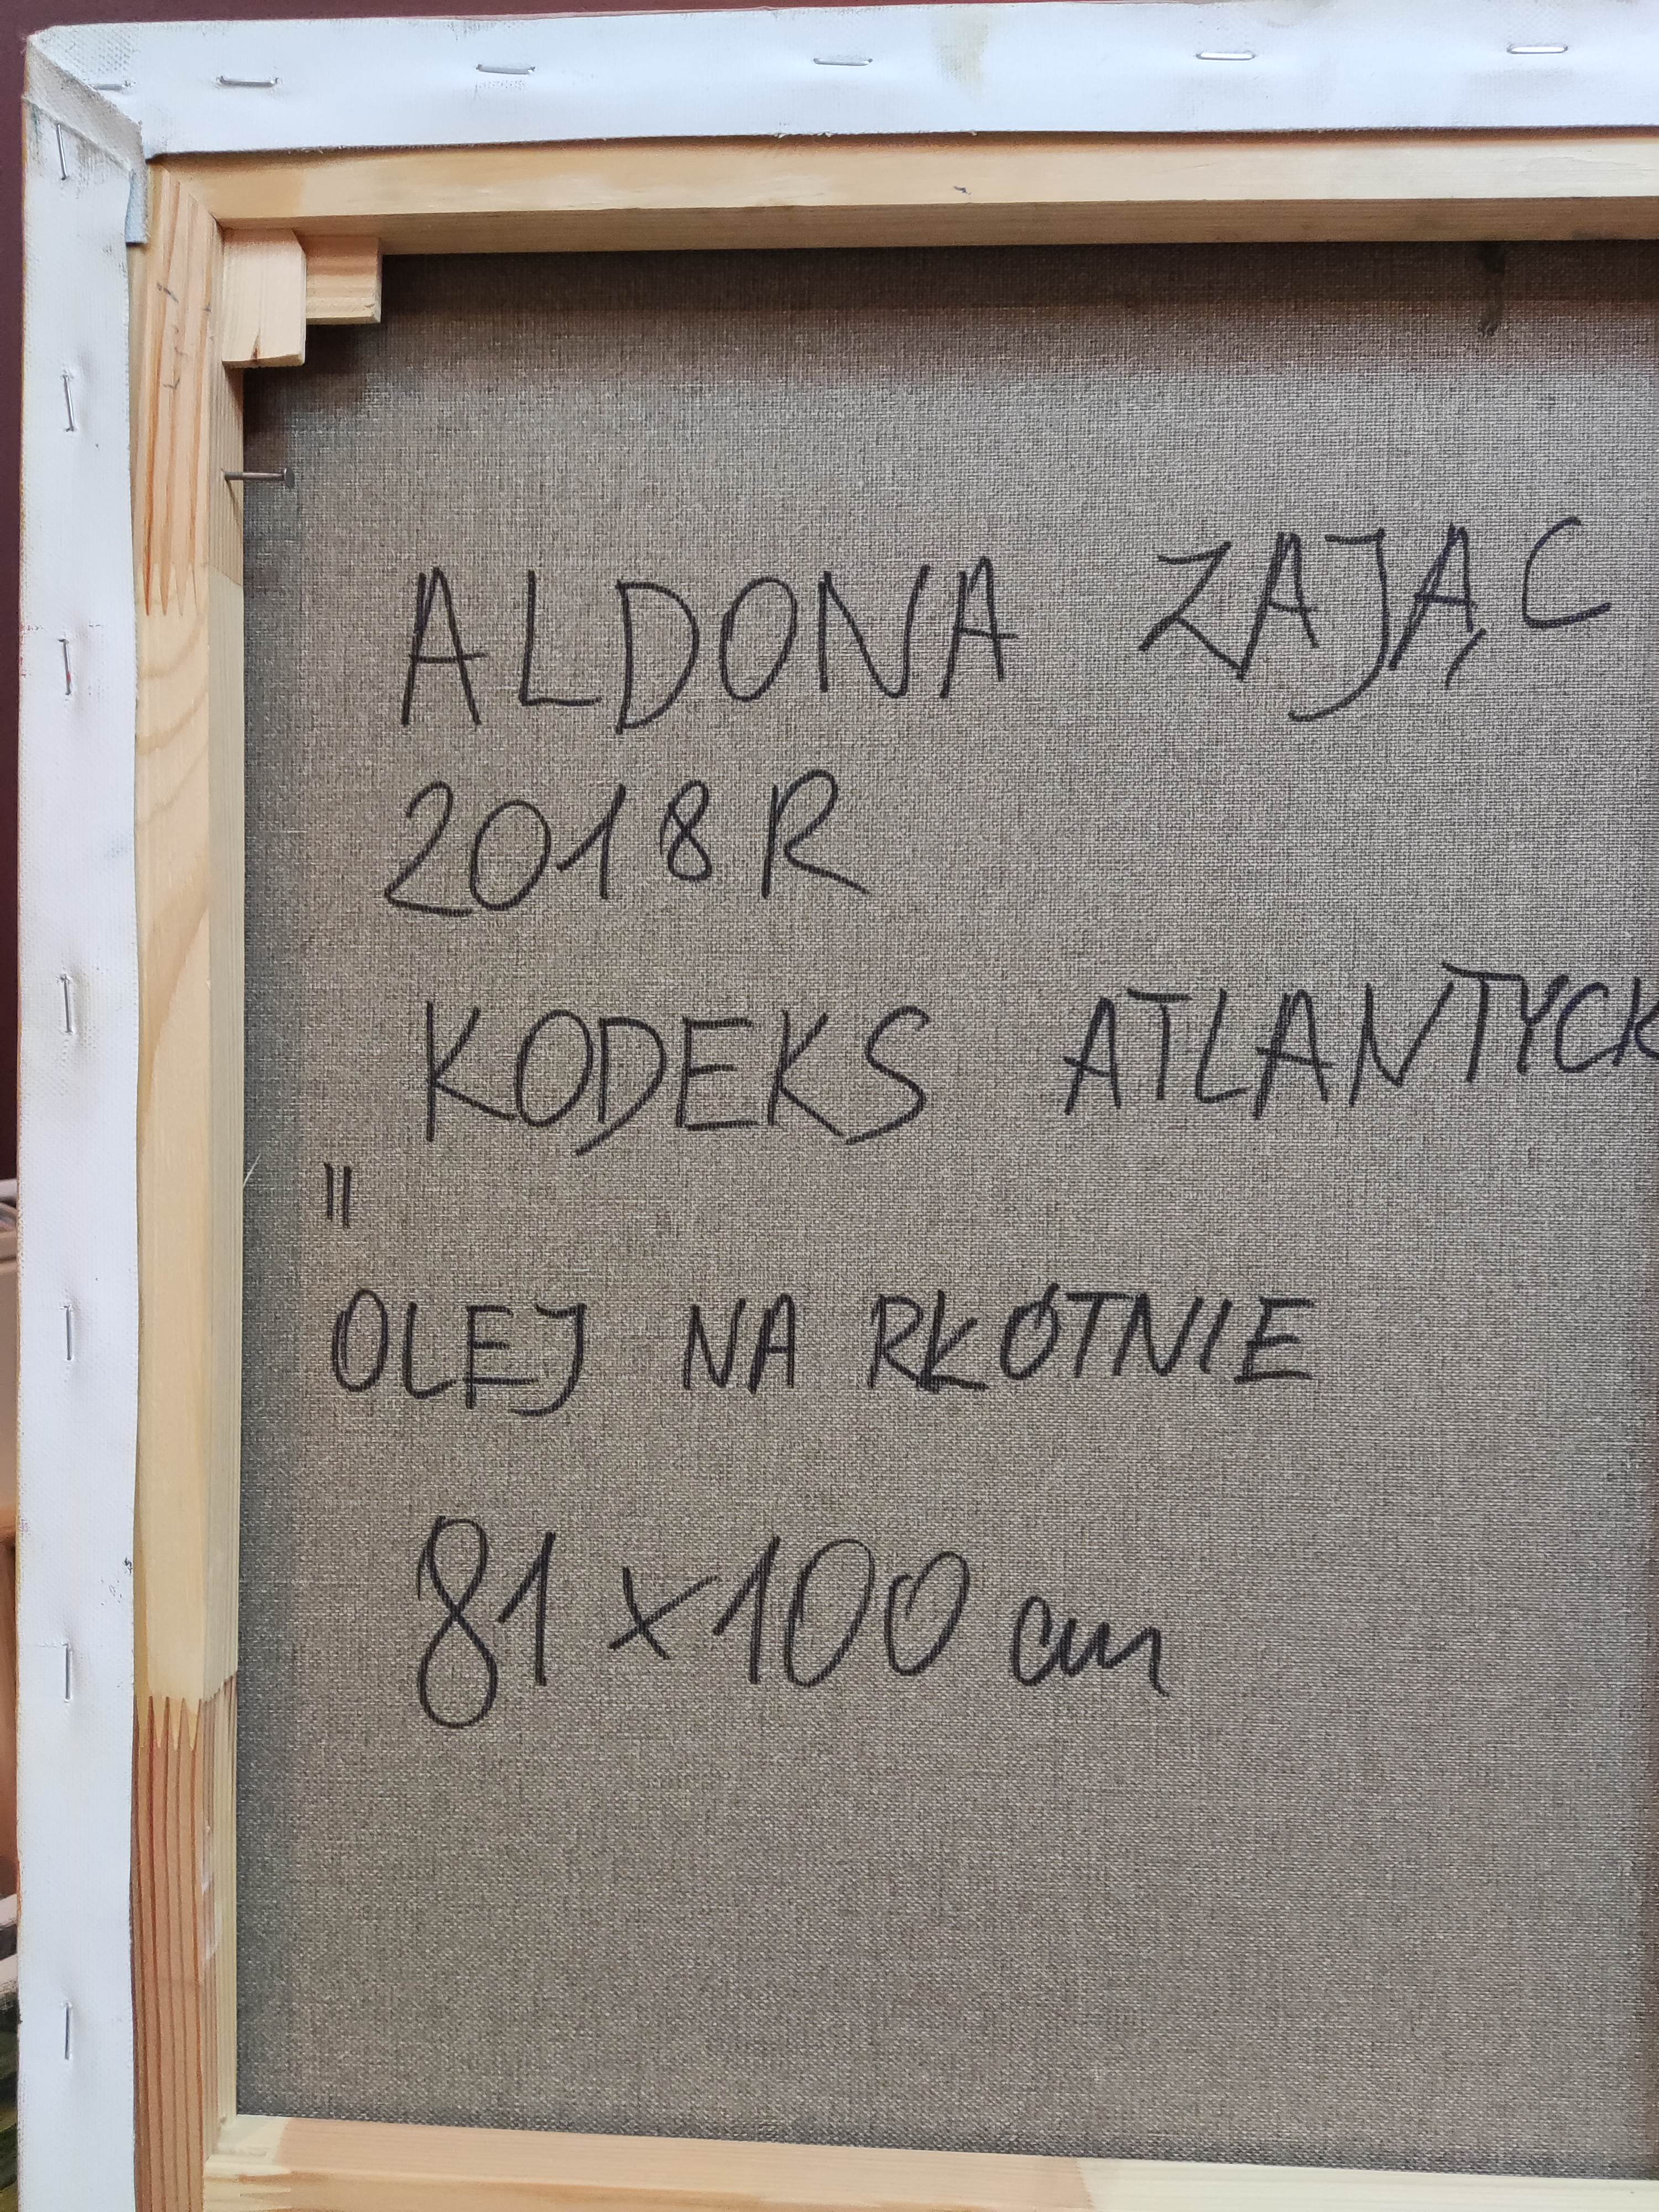 ALDONA ZAJĄC
2018 R
KODEKS ATLANTYCK
"
OLEJ NA PŁÓTNIE
81 x 100 cm